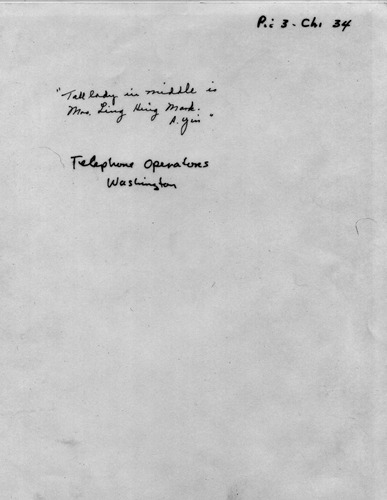 Pic 3 - Chi 34
"Tall lady in middle is
Mrs. Ling Hing Mark.
A. Yin"
Telephone Operators
Washington